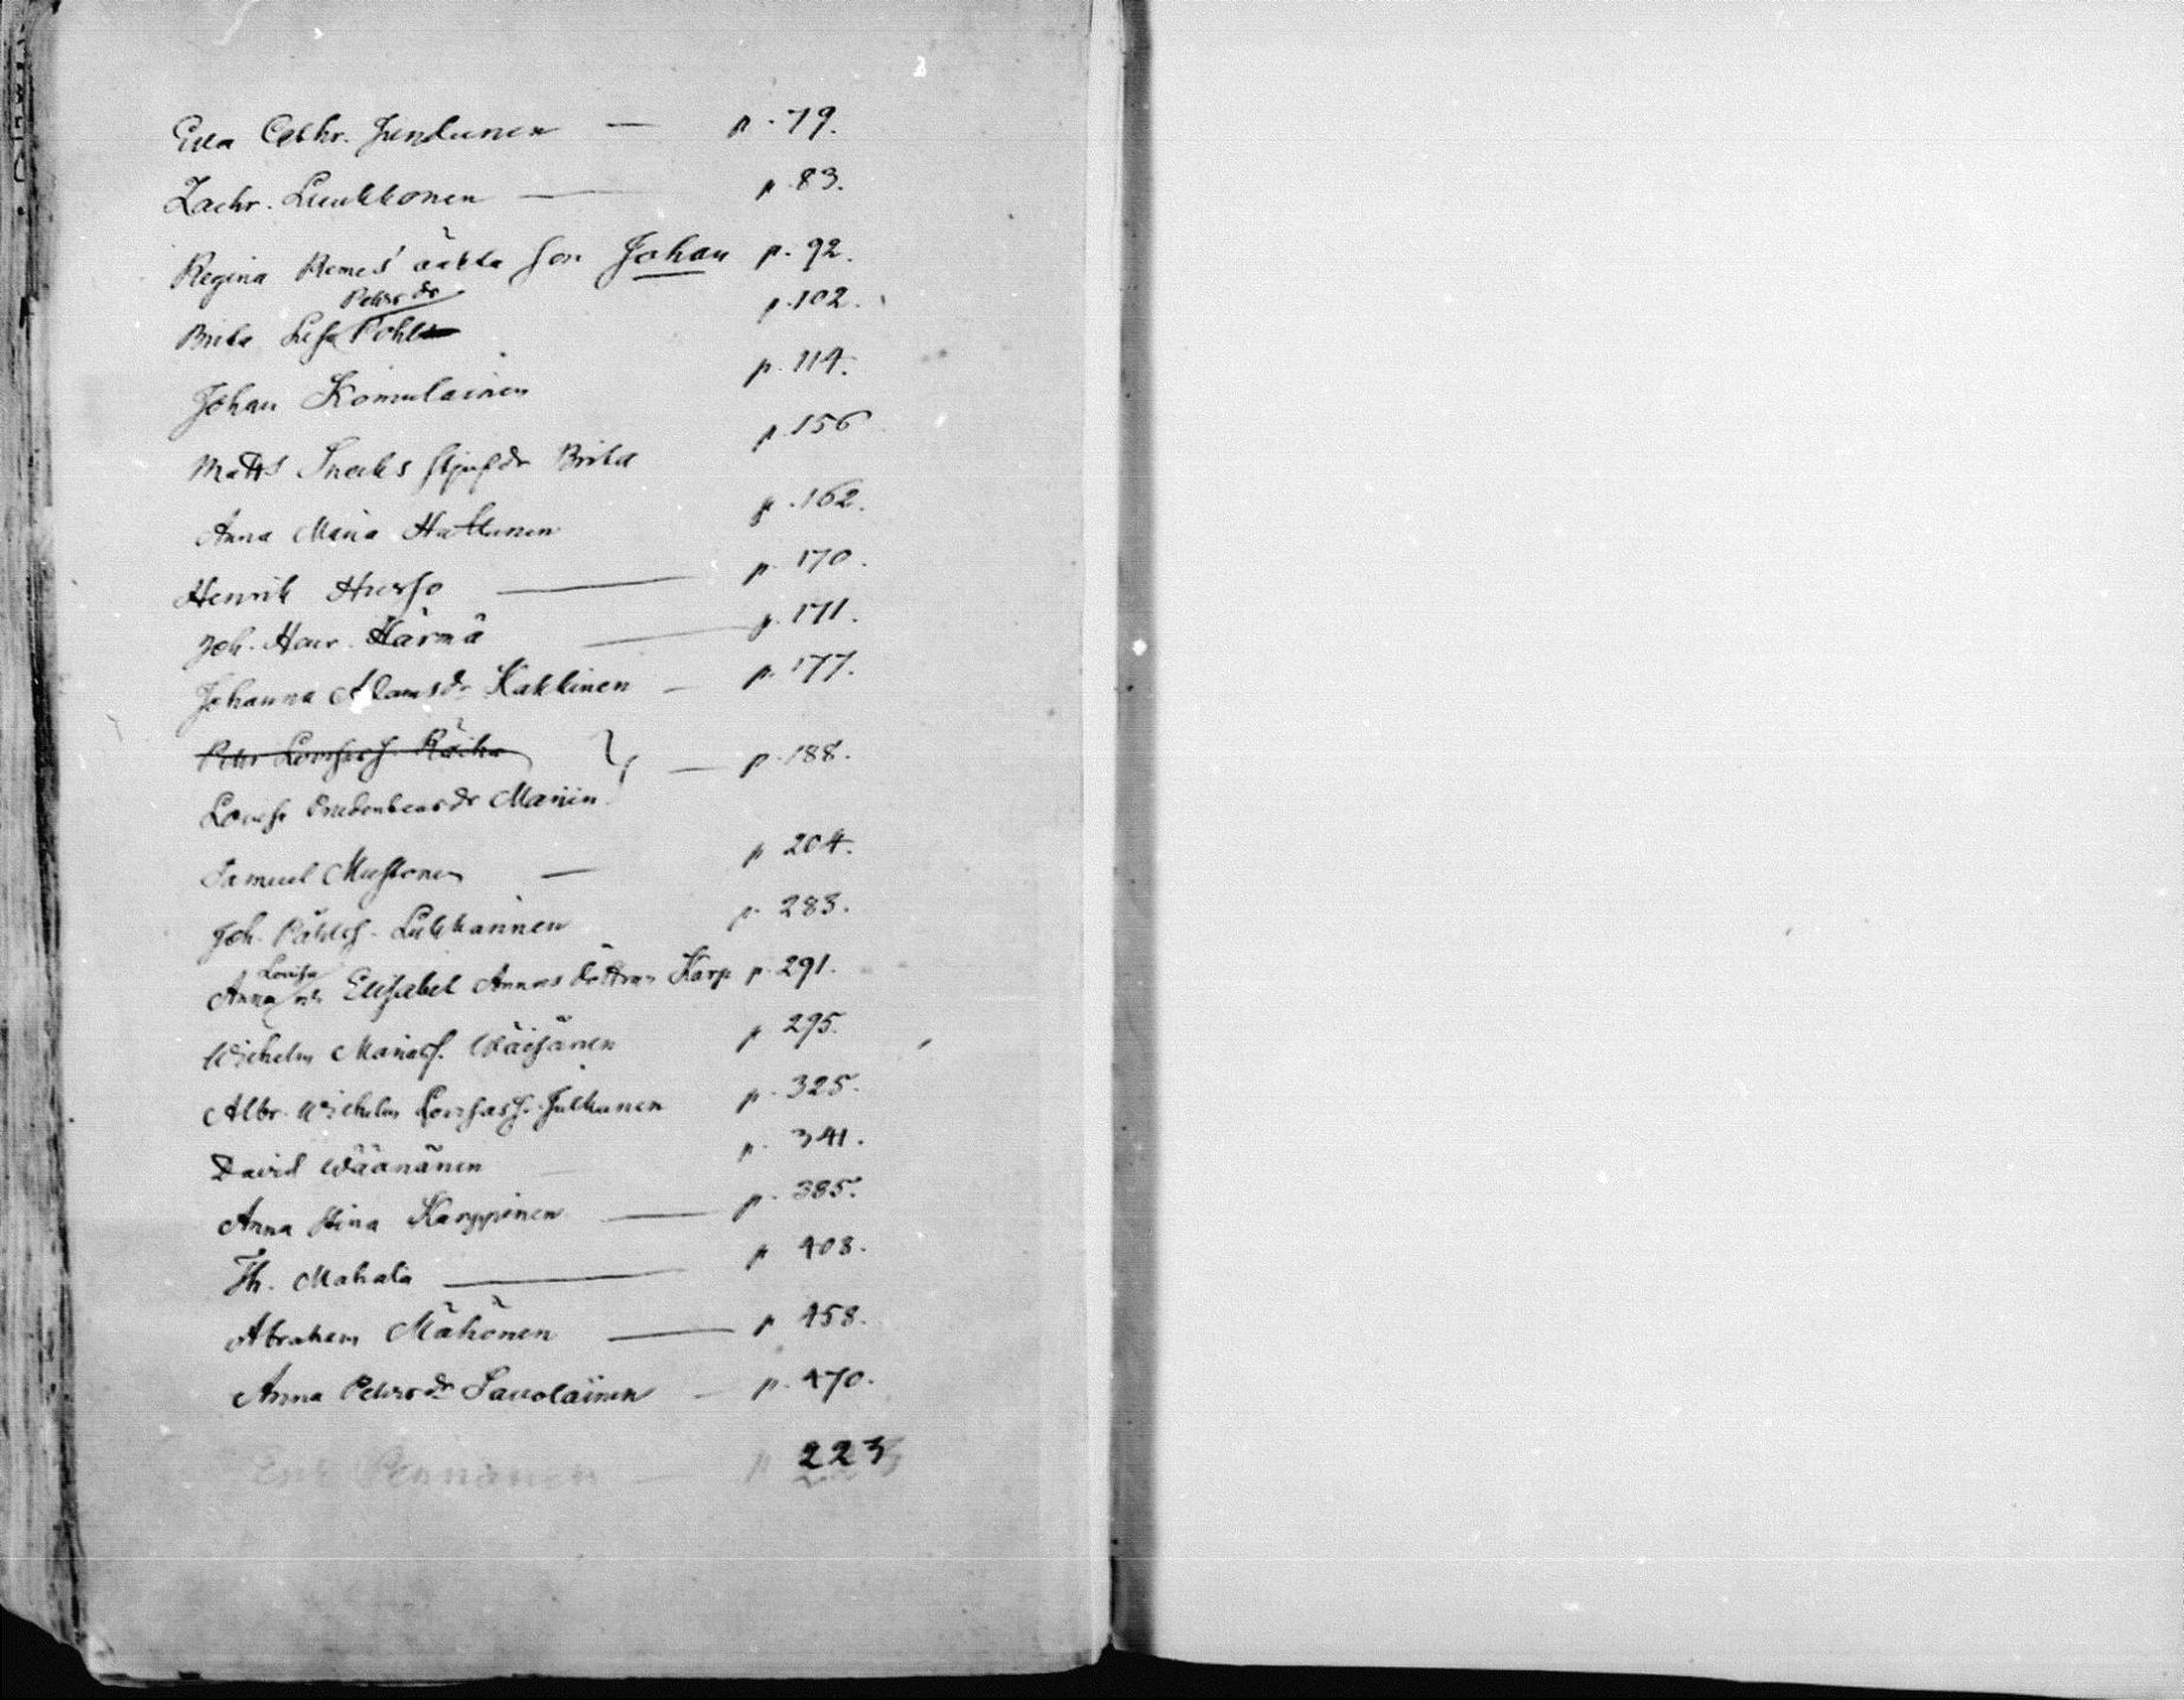 Eva Cathr. Jundunen — p. 79.
Zachr. Luukkonen — p. 83.
Regina Remes' äkta son Johan p. 92.
Petrsdr
Brita Lisa Pohl p. 102.
Johan Komulainen p. 114.
Matts Snecks styfdr Brita p. 156
Anna Maria Hattunen p. 162.
Henrik Hurso — p. 170.
Joh. Henr. Härmä — p. 171.
Johanna Adamsdr Kakkinen — p. 177.
Petr Lovisas. Räihä — p. 188.
Lovisa Maunin
Samuel Mustonen — p. 204.
Joh. Påhls. Lukkarinen p. 283.
Lovisa
Anna och Elisabet Annas döttrar Karp p. 291.
Wilhelm Marias. Wäisänen p. 295.
Albr. Wilhelm Lovisas. Julkunen p. 325.
David Wäänänen p. 341.
Anna Stina Karppinen — p. 385.
Th. Mahala — p. 408.
Abraham Mähönen — p. 458.
Anna Petrsdr Savolainen — p. 470.
Erik — p 223